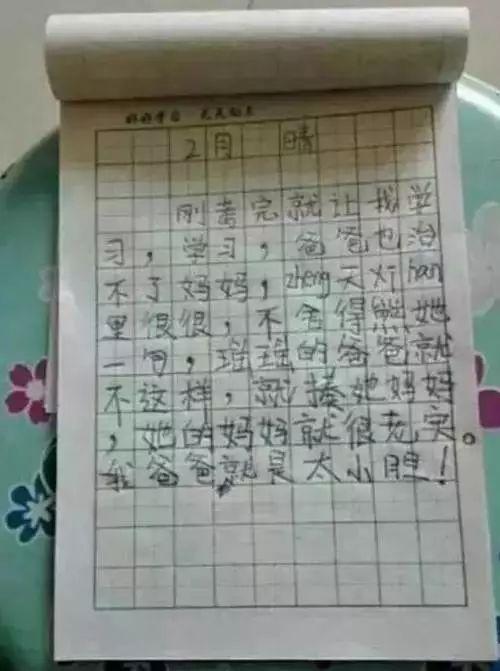 好好学习 天天向上
2月 晴
刚考完就让我学
习，学习，爸爸也治
不了妈妈，zheng天对han
里很很，不舍得熊她
一句，瑶瑶的爸爸就
不这样，就揍她妈妈
，她的妈妈就很老实。
我爸爸就是太小胆！